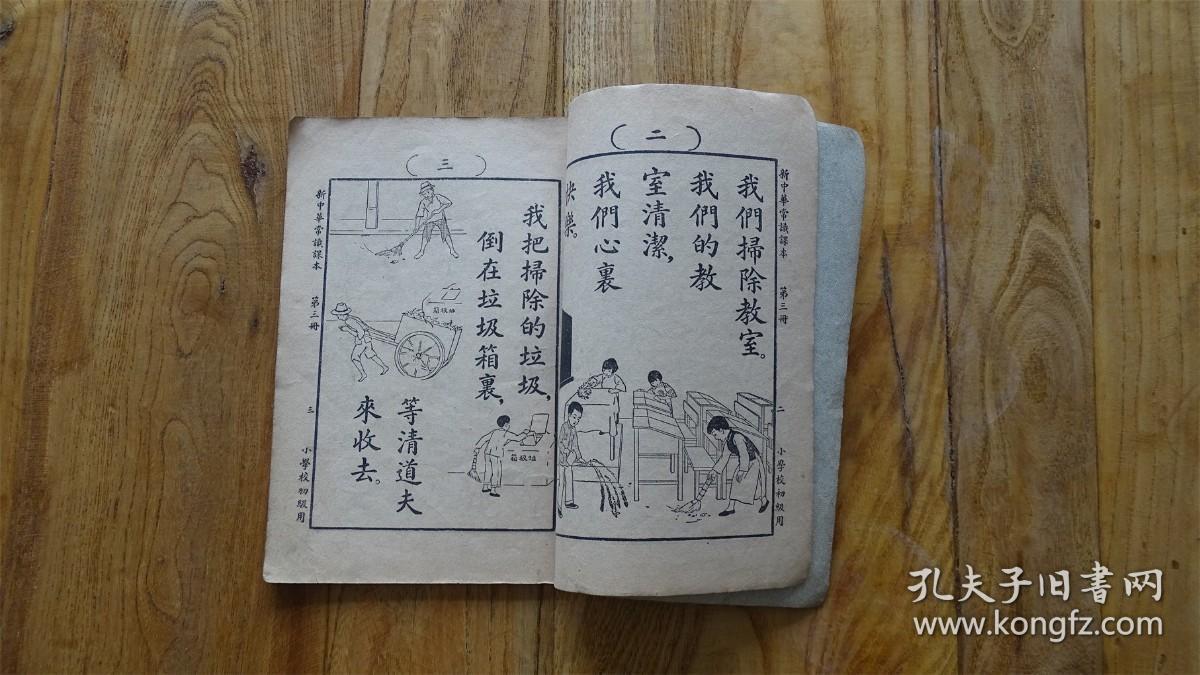 （二）
新中華常識課本 第三冊 二 小學校初級用
我們掃除教室。
我們的教
室清潔，
我們心裏
快樂。
（三）
我把掃除的垃圾，
倒在垃圾箱裏，
等清道夫
來收去。
垃圾箱
垃圾箱
新中華常識課本 第三冊 三 小學校初級用
孔夫子旧書网
www.kongfz.com